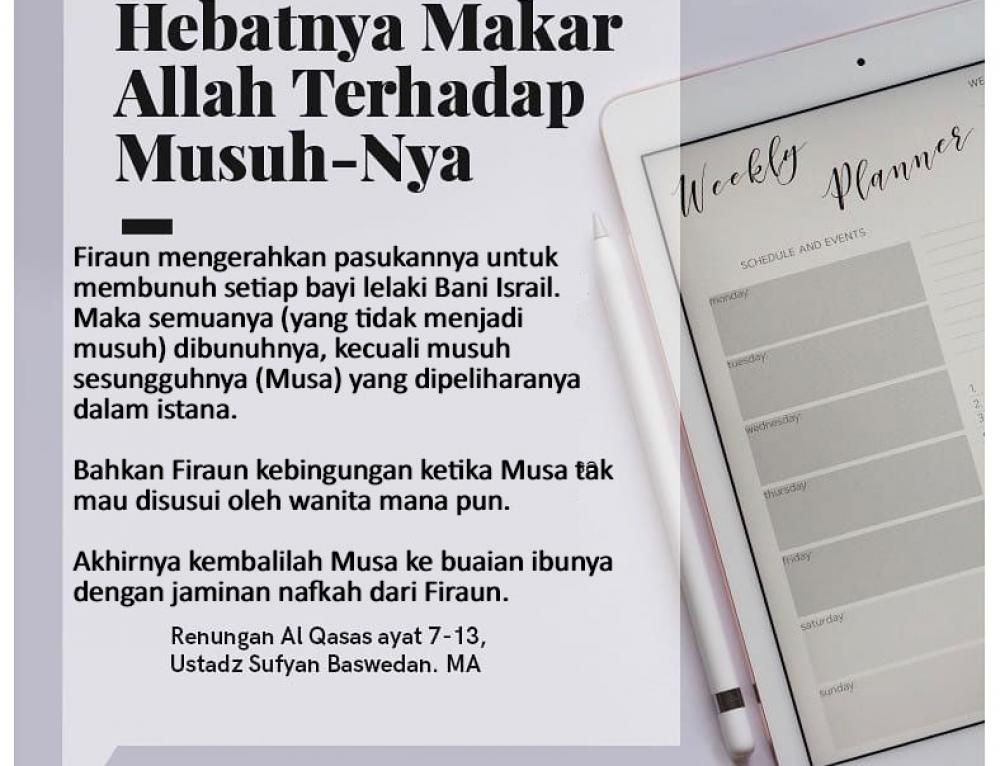 Hebatnya Makar
Allah Terhadap
Musuh-Nya
Firaun mengerahkan pasukannya untuk
membunuh setiap bayi lelaki Bani Israil.
Maka semuanya (yang tidak menjadi
musuh) dibunuhnya, kecuali musuh
sesungguhnya (Musa) yang dipeliharanya
dalam istana.
Bahkan Firaun kebingungan ketika Musa tak
mau disusui oleh wanita mana pun.
Akhirnya kembalilah Musa ke buaian ibunya
dengan jaminan nafkah dari Firaun.
Renungan Al Qasas ayat 7-13,
Ustadz Sufyan Baswedan. MA
Weekly Planner
SCHEDULE AND EVENTS
monday:
tuesday:
wednesday:
thursday:
friday:
saturday:
sunday:
1.
2.
3